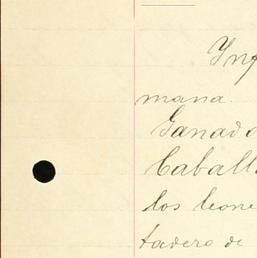 Ynq
mana.
Ganado
Caball
los leone
tadero de